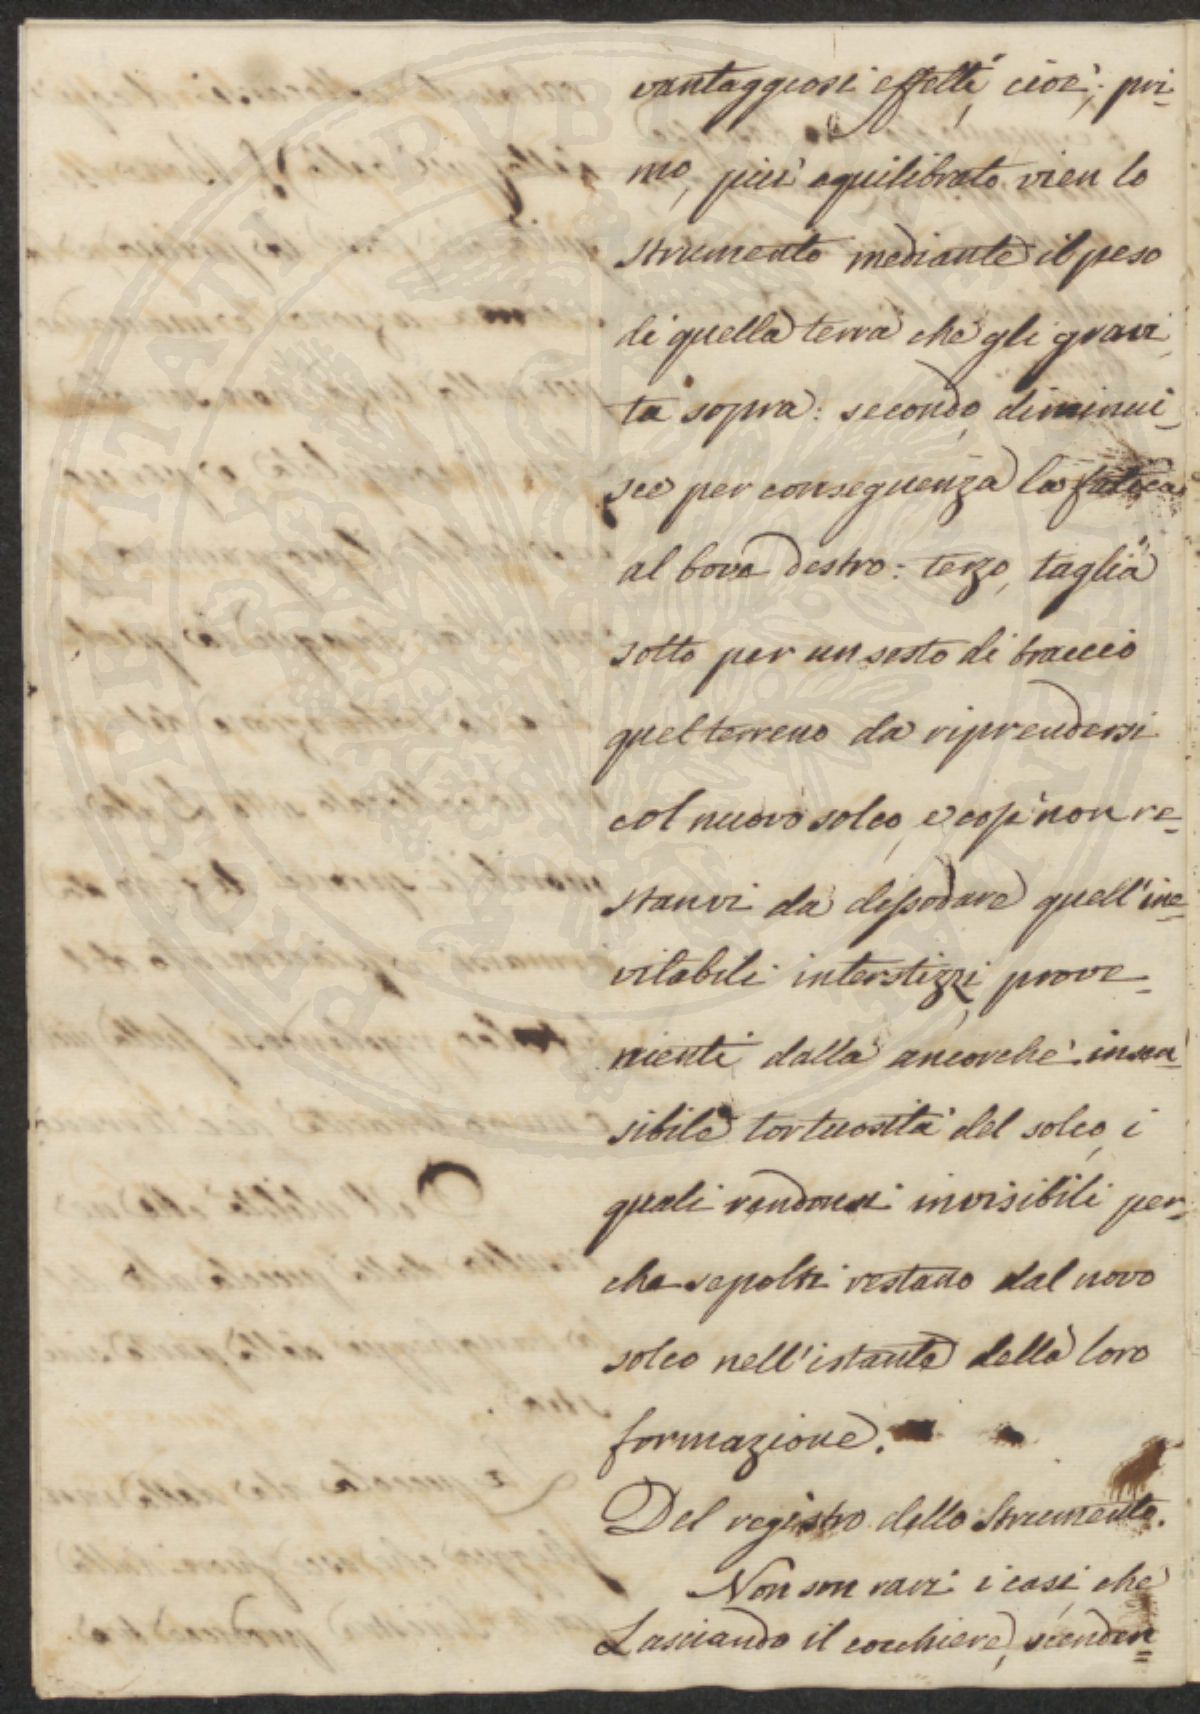 vantaggiosi effetti, cioè; pri-
mo, più equilibrato vien lo
strumento mediante il peso
di quella terra che gli gravi-
ta sopra: secondo, diminui-
sce per conseguenza la fatica
al bove destro: terzo, taglia
sotto per un sesto di braccio
quel terreno da riprendersi
col nuovo solco, e così non re-
stanvi da dissodare quell'ine-
vitabili interstizzi, prove-
nienti dalla ancorchè insen-
sibile tortuosità del solco, i
quali rendonsi invisibili per-
che sepolti restano dal novo
solco nell'istante della loro
formazione.
Del registro dello Strumento.
Non son rari i casi, che
Lasciando il cocchiere, scender=